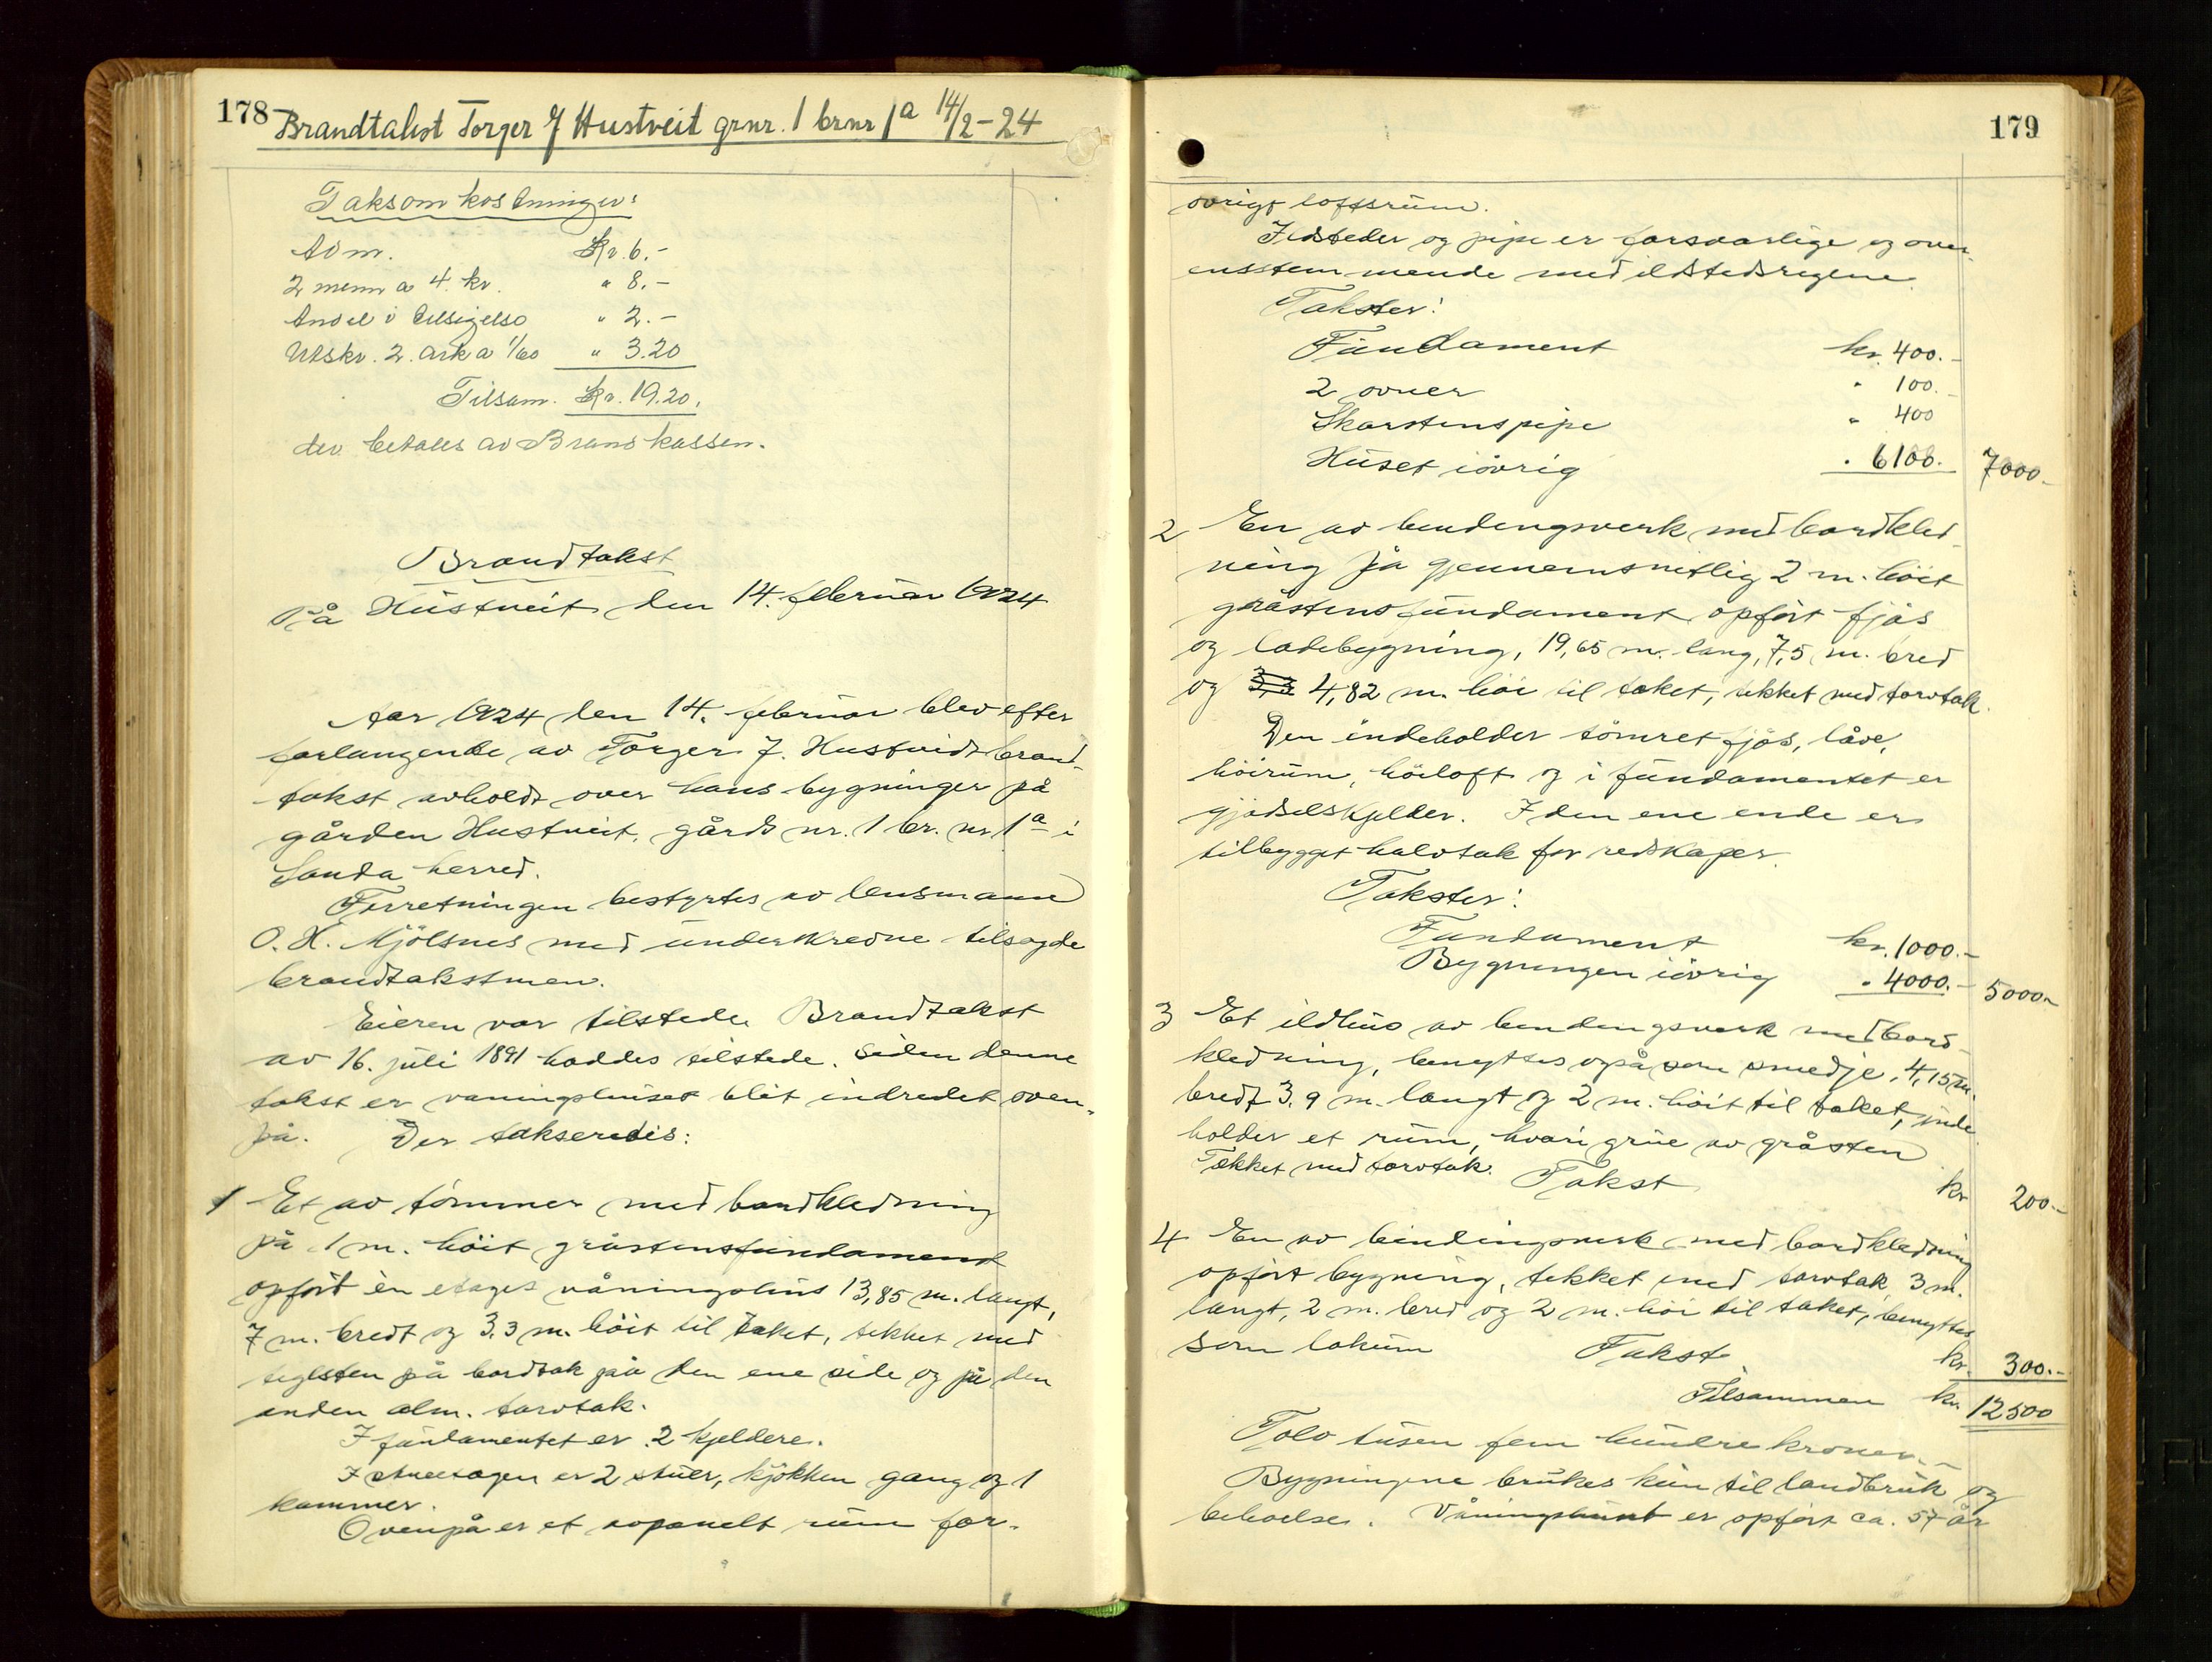 178
Brandtakst Torger J Hustveit grnr. 1 brnr 1a 14/2-24
Taksomkostninger:
Adm. Kr. 6.-
2 menn a 4. kr. " 8.-
Andel i tilsigelse " 2.-
Utskr. 2. ark a 1/60 " 3.20
Tilsam. Kr. 19.20.
der betales av Brandkassen.
Brandtakst
på Hustveit den 14. februar 1924
Aar 1924 den 14. februar blev efter
forlangende av Torger J. Hustveit brand-
takst avholdt over hans bygninger på
gården Hustveit, gårds nr. 1 br. nr 1a i
Sanda herred.
Forretningen bestyrtes av lensmann
O. H. Mjölsnes med underskrevne tilsagde
brandtakstmen.
Eieren var tilstede. Brandtakst
av 16. juli 1891 haddes tilstede. Siden denne
takst er vaningshuset blit indredet oven-
på. Der takseredes:
1 Et av tömmer med bordkledning
på 1 m. höit gråstensfundament
opfört èn etages våningshus 13,85 m. langt,
7 m. bredt og 3,3 m. höit til taket, tekket med
teglsten på bordtak paa den ene side og på den
anden alm. torvtak.
I fundamentet er 2 kjeldere.
I stueetagen er 2 stuer, kjökken gang og 1
kammer.
Ovenpå er et avpanelt rum for-
179
övrigt loftsrum.
Ildsteder og pipe er forsvarlige og over-
ensstemmende med ildstedsreglene.
Takster:
Fundament kr. 400.-
2 ovner " 100.-
Skorstenspipe " 400
Huset iövrig " 6100.- 7000.-
2 En av bindingsverk med bordkled-
ning på gjennemsnitlig 2 m. höit
gråstensfundament opfört fjös
og ladebygning, 19,65 m. lang, 7,5 m. bred
og 3,3 4,82 m. höi til taket, tekket med torvtak.
Den indeholder tömret fjös, låve,
höirum, höiloft og i fundamentet er
gjödselskjelder. I den ene ende er
tilbygget halvtak for redskaper.
Takster:
Fundament kr. 1000.-
Bygningen iövrig " 4000.- 5000.-
3 Et ildhus av bindingsverk med bord-
kledning, benyttes også som smedje, 4,15 m.
bredt 3,9 m. langt og 2 m. höit til taket, inde-
holder et rum, hvori grue av gråsten
Tekket med torvtak. Takst kr 200.-
4 En av bindingsverk med bordkledning
opfört bygning, tekket med torvtak, 3 m.
langt, 2 m. bred og 2 m. höi til taket, benyttes
som lokum Takst kr. 300.-
Tilsammen kr. 12500
Tolv tusen fem hundre kroner.-
Bygningene brukes kun til landbruk og
beboelse. Våningshuset er opfört ca. 57 år